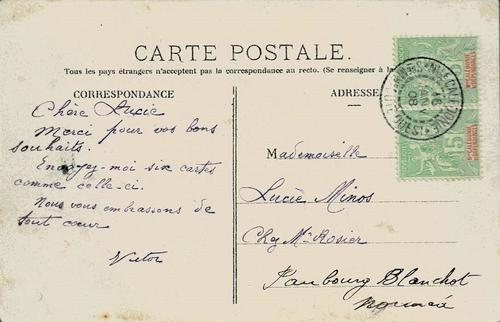 CARTE POSTALE.
Tous les pays étrangers n'acceptent pas la correspondance au recto. (Se renseigner à la
CORRESPONDANCE
Chère Lucie
Merci pour vos bons
souhaits.
Envoyez-moi six cartes
comme celle-ci.
Nous vous embrassons de
tout cœur
Victor
ADRESSE
Mademoiselle
Lucie Minos
Chez Mr Rosier
Faubourg Blanchot
Nouméa
16
JANV
08
5